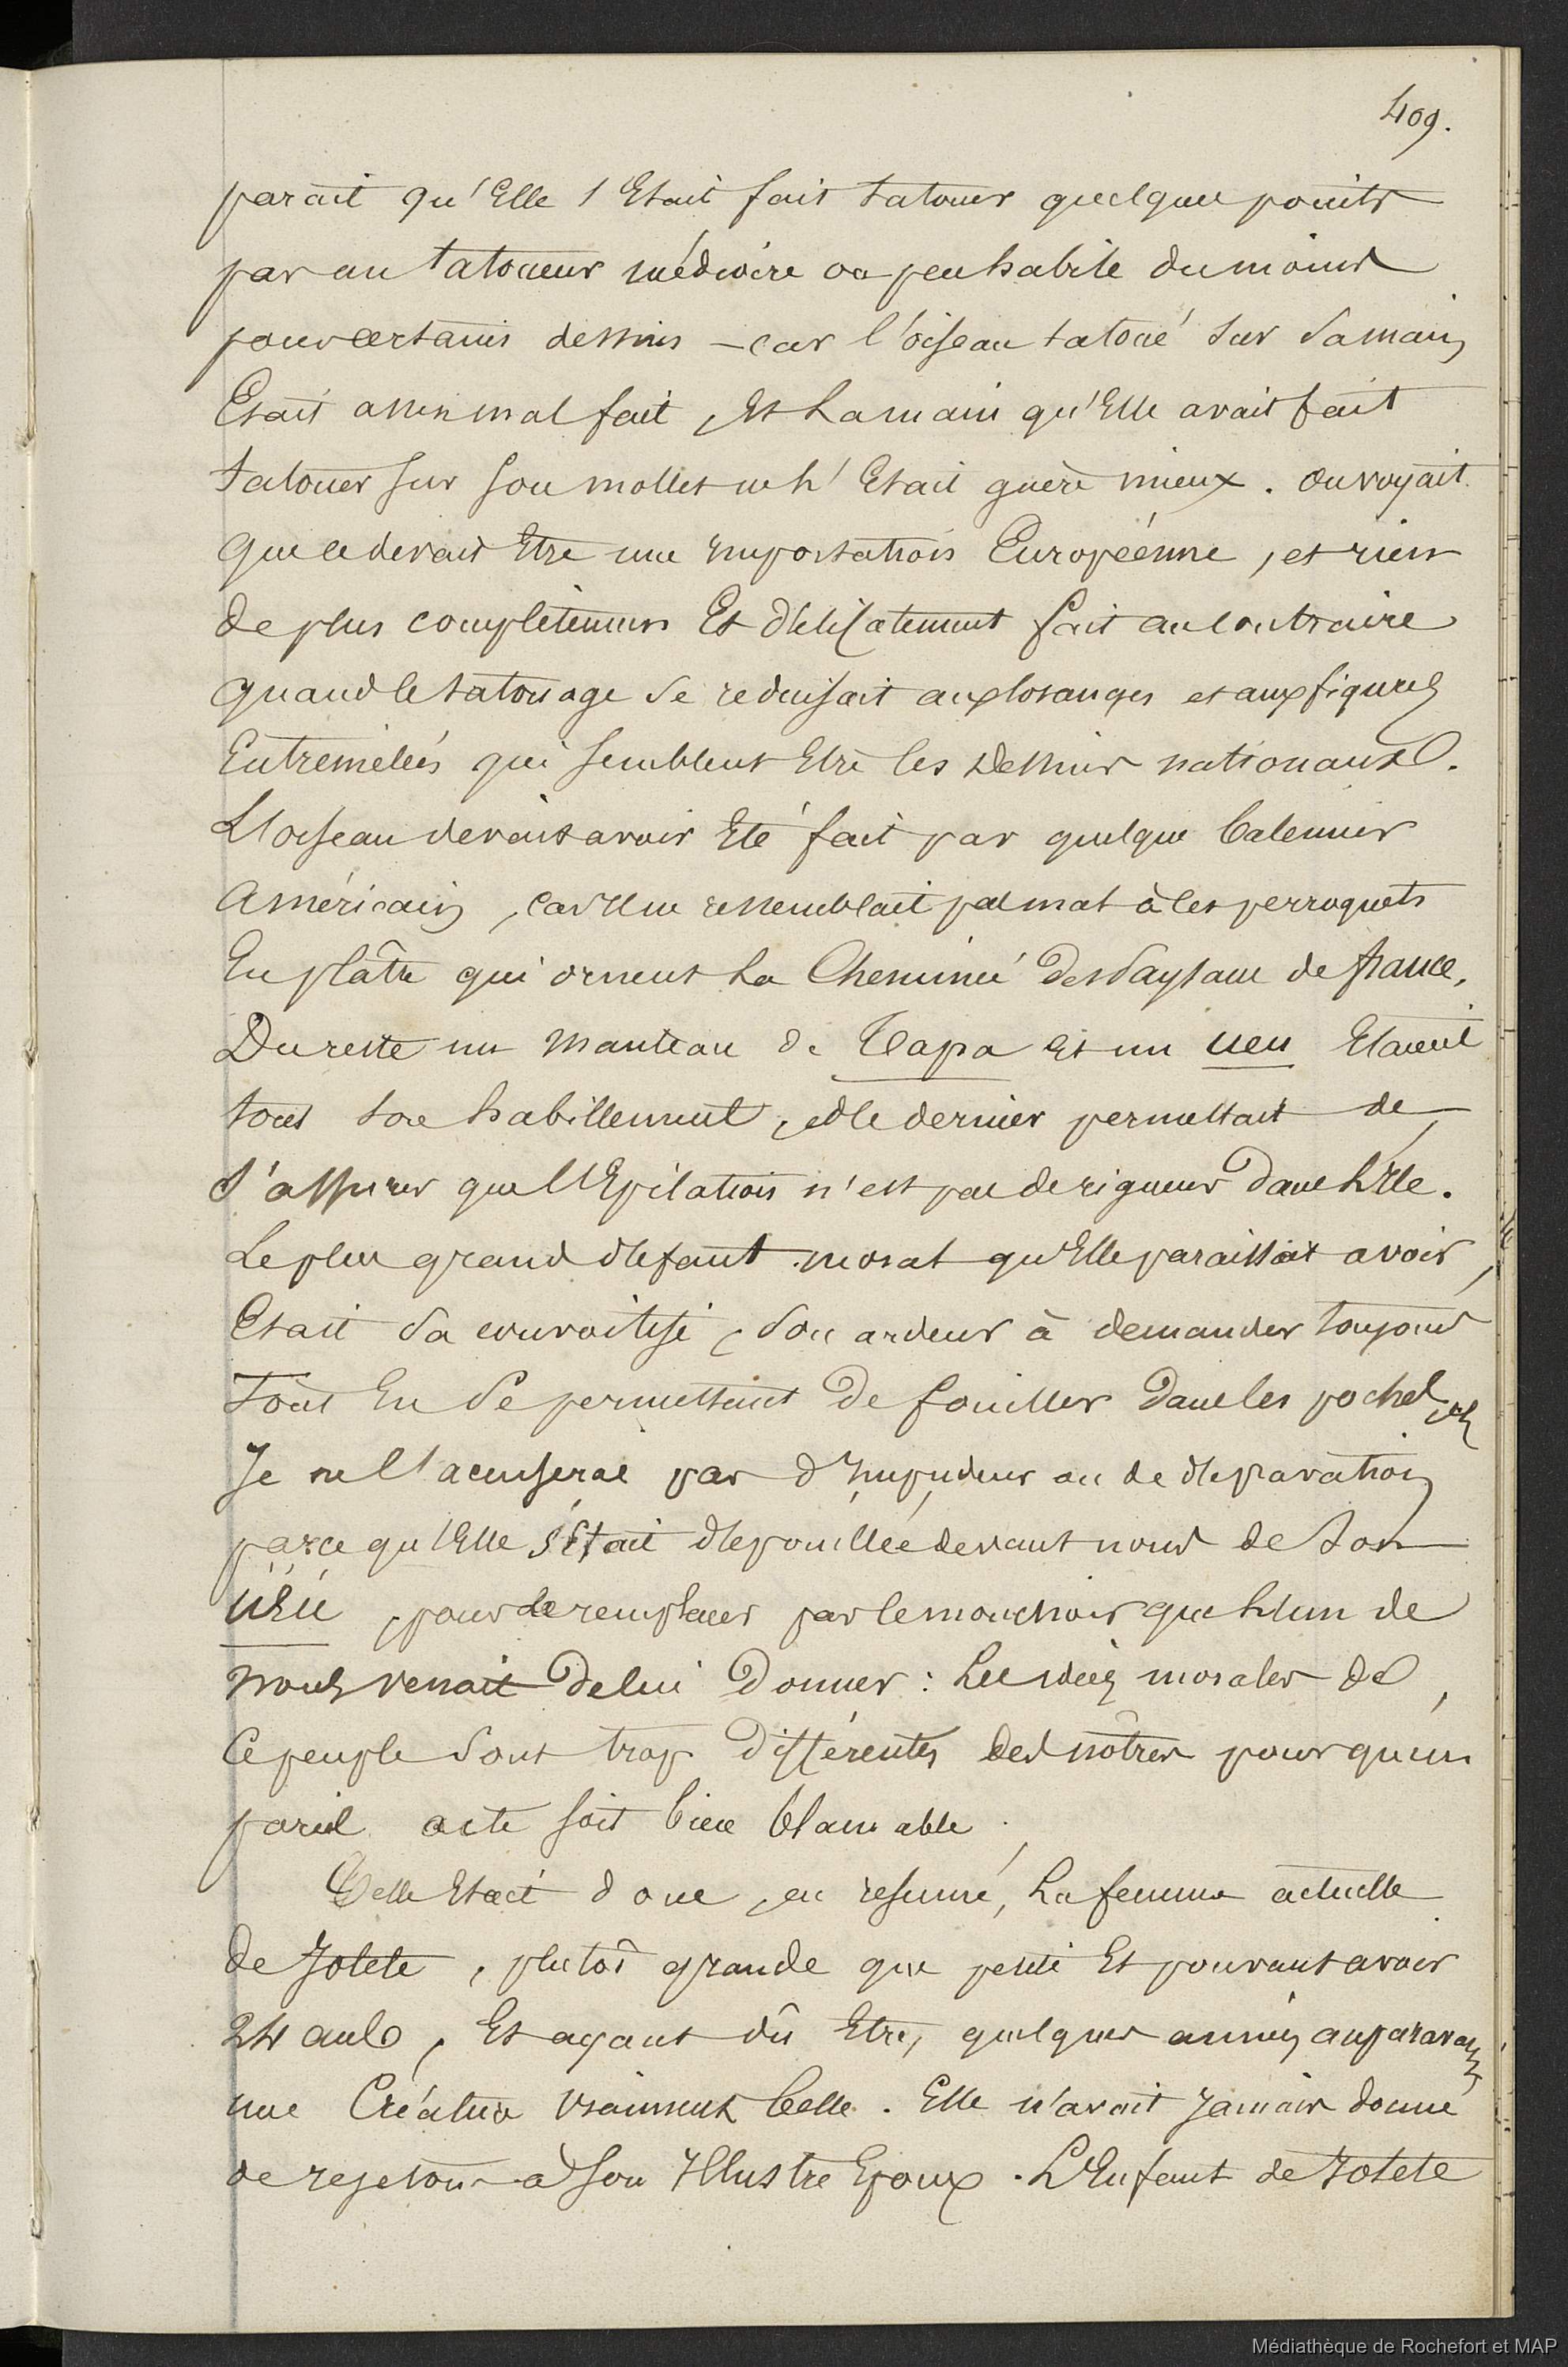 409.
parait qu'Elle s'Etait fait tatouer quelques points
par un tatoueur médiocre ou peu habile du moins
pour certains dessins – car l'oiseau tatoué sur sa main
Etait assez mal fait, Et la main qu'Elle avait fait
tatouer sur son mollet ne l'Etait guère mieux. on voyait
que ce devait Etre une importation Européenne, et rien
de plus complètement Et délicatement fait au contraire
quand le tatouage se reduisait aux losanges et aux figures
Entremêlées qui semblent Etre les dessins nationaux.
L'oiseau devait avoir Eté fait par quelque baleinier
américain, car il ne ressemblait pas mal à ces perroquets
En plâtre qui ornent la Cheminée des paysans de france.
Du reste un manteau de Tapa Et un ueu Etaient
tout son habillement, et le dernier permettait de
s'assurer que l'Epilation n'est pas de rigueur dans l'île.
Le plus grand défaut moral qu'Elle paraissait avoir,
Etait sa convoitise, son ardeur à demander toujours
Tout En se permettant de fouiller dans les poches,
Je ne l'accuserai pas d'Impudeur ou de dépravation
parce qu'Elle s'Etait dépouillée devant nous de son
ueu, pour le remplacer par le mouchoir que l'un de
nous venait de lui donner : Les idées morales de
Ce peuple sont trop différentes des nôtres pour qu'un
pareil acte soit bien blamable.
Telle Etait donc, en resumé, la femme actuelle
de Iotete, plutôt grande que petite Et pouvant avoir
24 ans, Et ayant dû Etre, quelques années auparavant
une Créature vraiment belle. Elle n'avait Jamais donné
de rejetons à son Illustre Epoux. L'Enfant de Iotete
Médiathèque de Rochefort et MAP